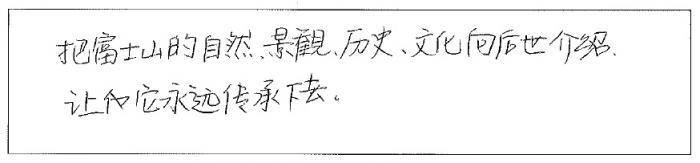 把富士山的自然、景觀、历史、文化向后世介绍.
让它永远传承下去。